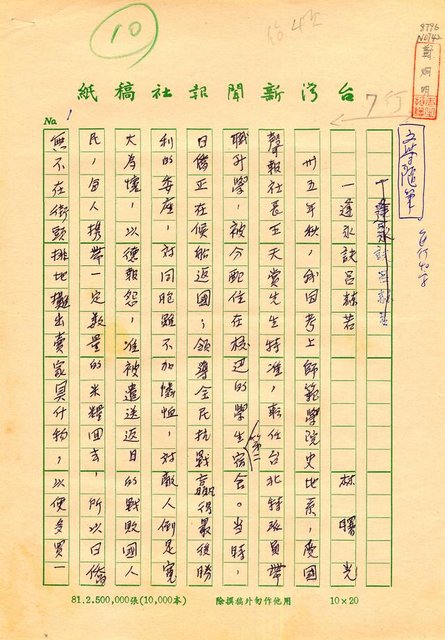 8796
N0742
10
7行
台灣新聞報社稿紙
No. 1
文學隨筆
一逢永訣呂赫若
林曙光
卅五年秋，我因考上師範學院史地系，應國
聲報社長王天賞先生特准，転任台北特派員帶
職升學，被分配住在校边的學生第二宿舍。當時，
日僑正在候船返國；領導全民抗戰贏得最後勝
利的委座，对同胞雖不加憐恤，对敵人倒是寬
大為懷，以德報怨，准被遣送返日的戰敗國人
民，每人携帶一定數量的米糧回去，所以日僑
無不在街頭排地攤出賣家具什物，以便多買一
81.2.500,000張(10,000本)
除撰稿外勿作他用
10×20